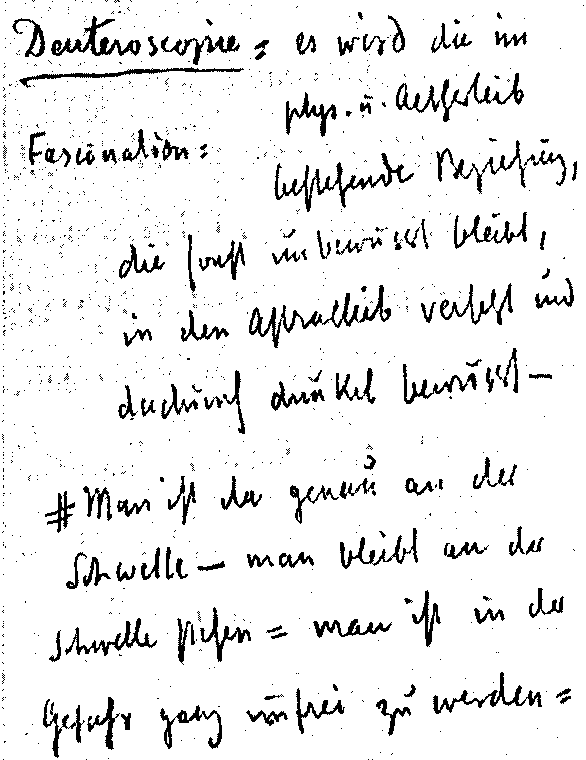 Deuteroscopie = es wird die im
phys. u. Aetherleib
Fascination =
bestehende Beziehung,
die sonst unbewusst bleibt,
in den Astralleib verlegt und
dadurch dunkel bewusst —
# Man ist da genau an der
Schwelle — man bleibt an der
Schwelle stehen = man ist in der
Gefahr ganz unfrei zu werden =